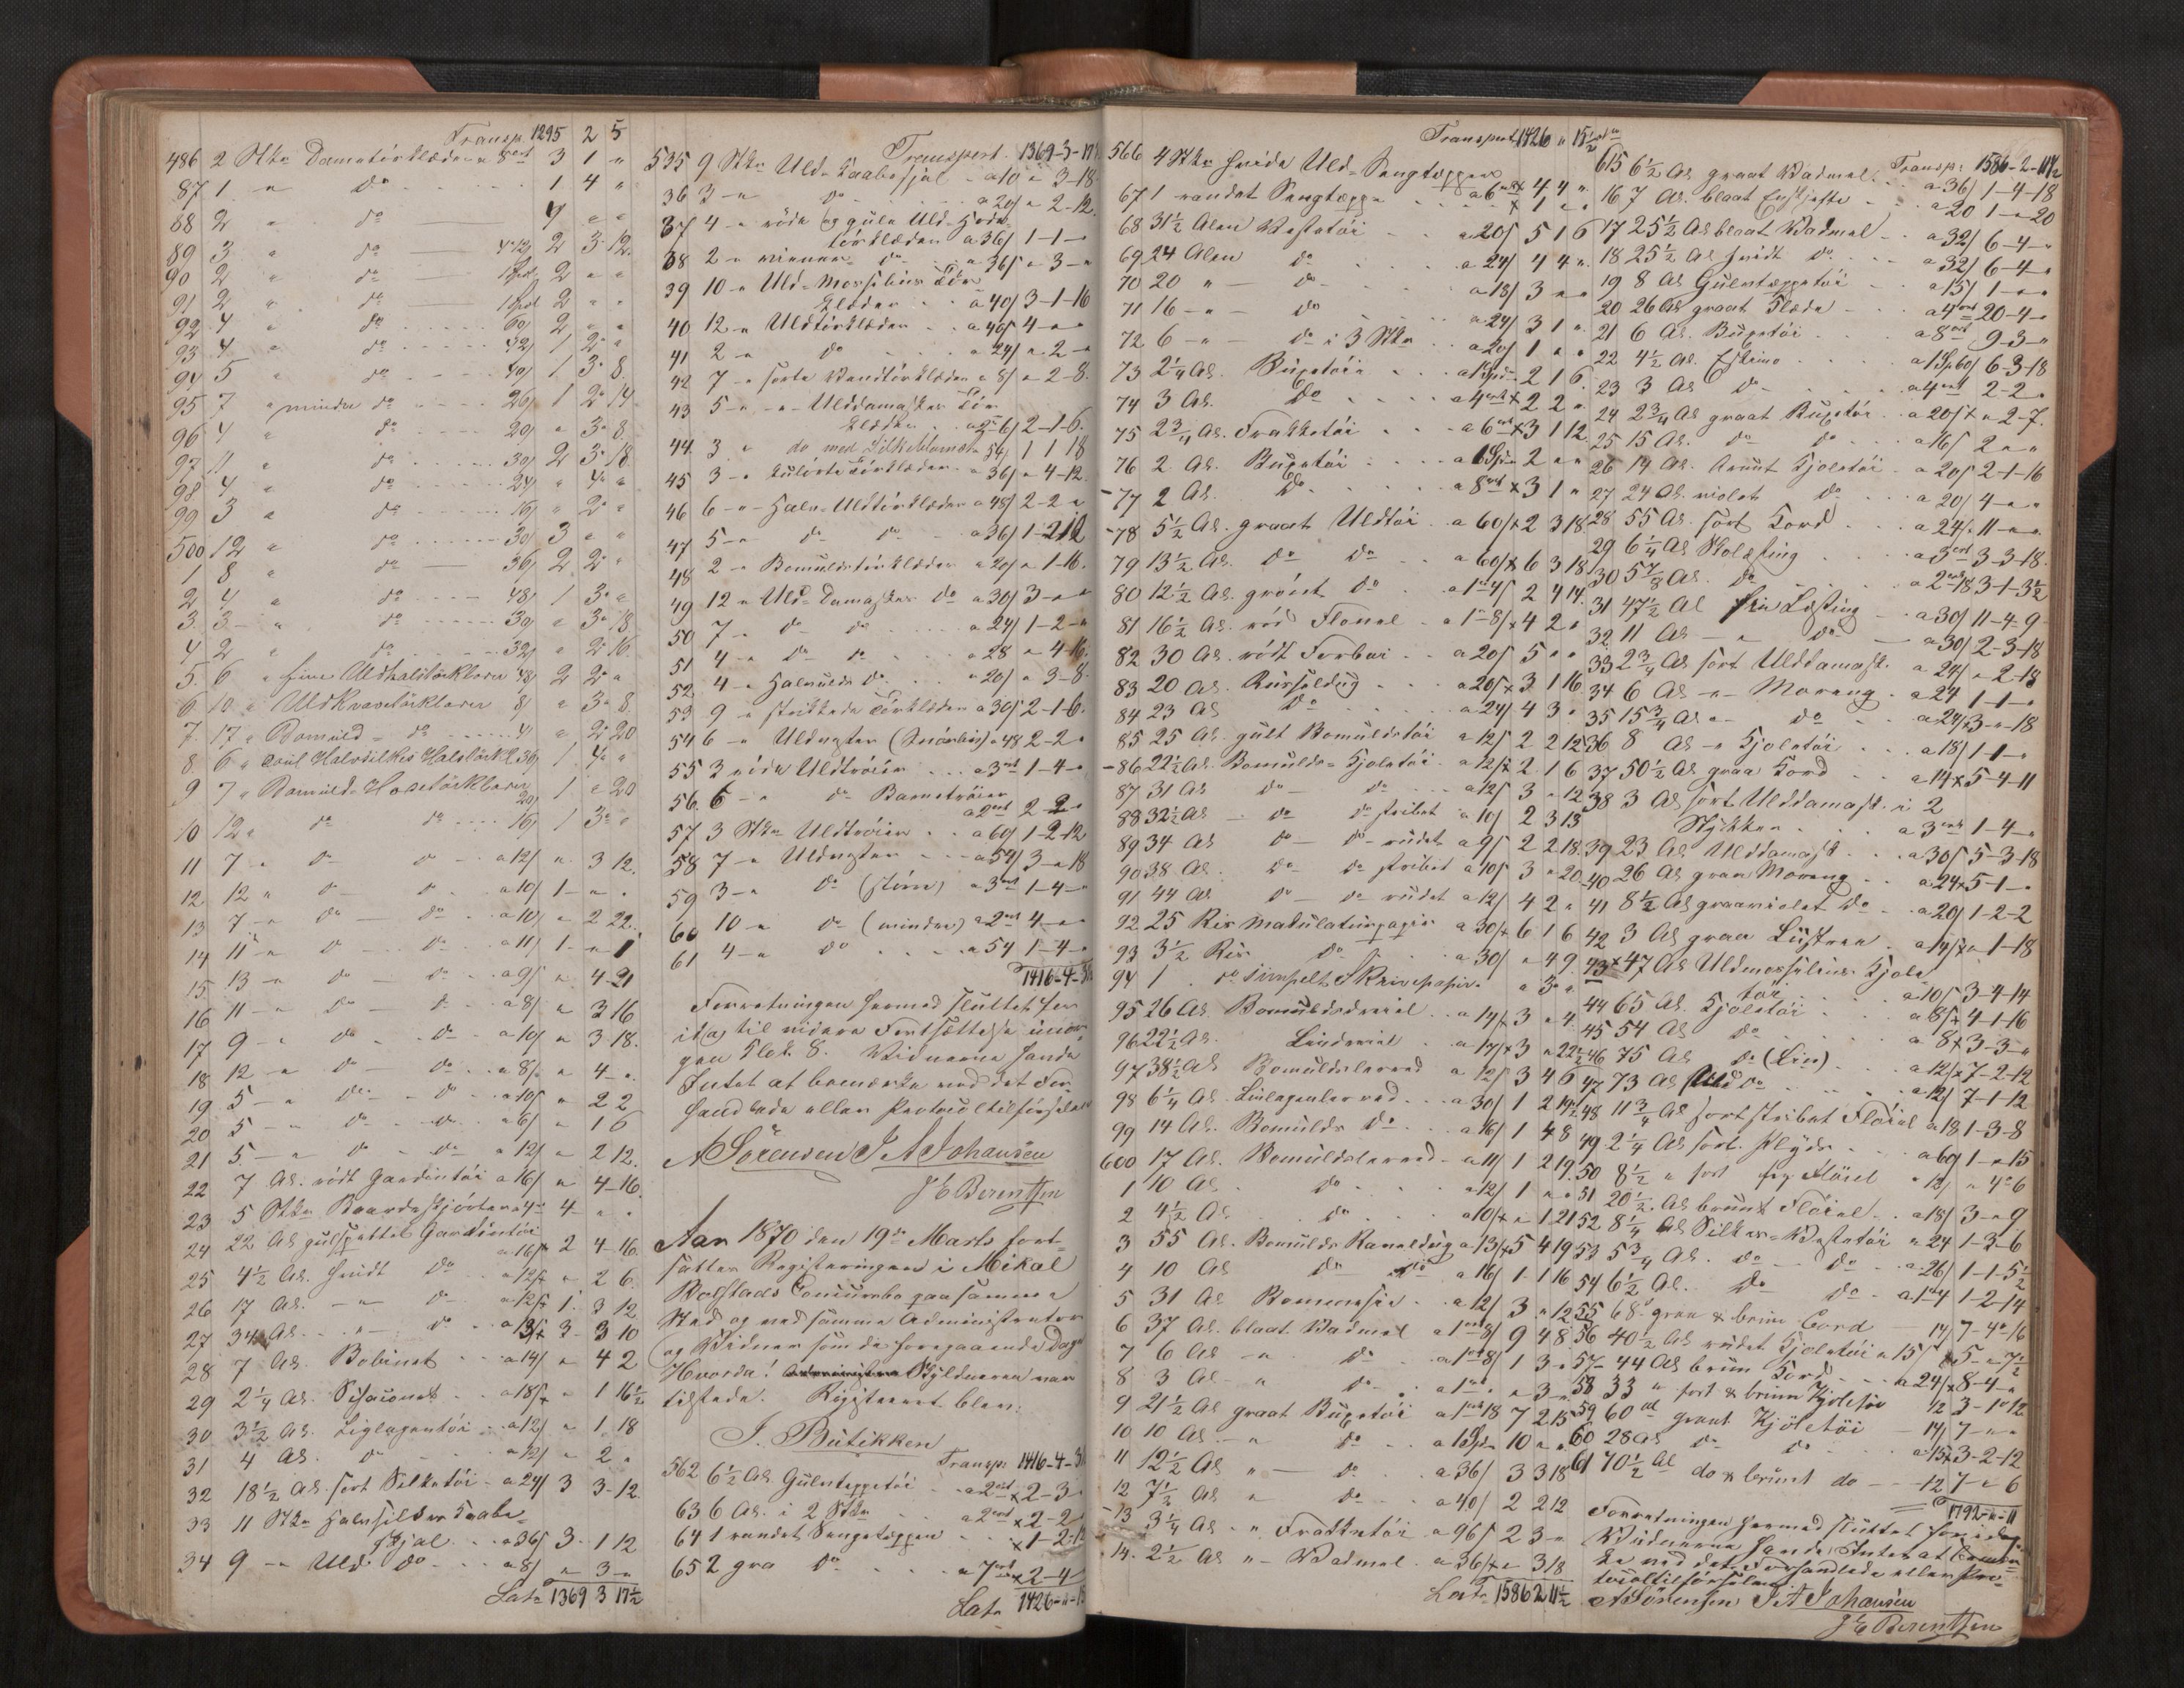 Transp. 1295 2 5
486 2 Stkr Dametörklæder a 8ort 3 1 "
87 1 " do 1 4 "
88 2 " do 4 " "
89 3 " do 2 3 12
90 2 " do 2 " "
91 2 " do 2 " "
92 4 " do 60/ 2 " "
93 4 " do 42/ 1 2 "
94 5 " do 40/ 1 3 8
95 7 " mindre do 26/ 1 2 14
96 4 " do 20/ " 3 8
97 11 " do 30/ 2 3 18
98 4 " do 24/ " 4 "
99 3 " do 16/ " 2 "
500 12 " do 30/ 3 " "
1 8 " do 36/ 2 2 "
2 4 " do 48/ 1 3 "
3 3 " do 39/ " 3 18
4 2 " do 32/ " 2 16
5 6 " fine Uldhalstörklæder 48/ 2 2 "
6 10 " Uldkravetörklæder 8/ " 3 8
7 17 " Bomuld " do 4/ " 2 20
8 6 " Halvsilkes Halstörkl. 36/ 1 4 "
9 7 " Bomulds Hovetörklæder 20/ 1 " 20
10 12 " do do 16/ 1 3 "
11 7 " do do a 12/ " 3 12
12 12 " do do a 10/ 1 " "
13 7 " do do a 10/ " 2 22
14 11 " do do a 11/ 1 " 1
15 13 " do do a 9/ " 4 21
16 11 " do do a 8/ " 3 16
17 9 " do do a 10/ " 3 18
18 12 " do do a 8/ " 4 "
19 5 " do do a 10/ " 2 2
20 5 " do do a 6/ " 1 6
21 5 " do do a 12/ " 2 12
22 7 Al. rödt Gardintöi a 16/ " 4 16
23 5 Stkr 4 " "
24 22 Al gulspettet Gardintöi
a 16/ 2 4 16
25 4½ Al. hvidt do a 12/ " 2 6
26 17 Al. " do a 12/ 1 3 12
27 34 Al. " do 3 3 10
28 7 Al. Bobinet a 14/ " 4 2
29 2¼ Al. a 18/ " 1 16½
30 3½ Al. a 12/ " 1 18
31 4 Al. do a 12/ " 2 "
32 18½ Al. sort Silketöi a 24/ 3 3 12
33 11 Stkr Halvsilkes Kaabe
Skjal a 36/ 3 1 12
34 9 " Uld do a 8/ " 3 "
Lat. 1369 3 17½
Transport. 1369-3-17½
535 9 Stkr Uld Kaabesjal a 10/ " 3-18
36 3 " do a 20/ " 2-12
37 4 " röde og gule Uld Hoved
törklæder a 36/ 1-1-"
38 2 " do a 36/ " 3-"
39 10 " Uld-Mosselins Tör
klæder a 40/ 3-1-16
40 12 " Uldtörklæder a 40/ 4-"-"
41 2 " do a 24/ " 2-"
42 7 " sorte Bandtörklæder a 8/ " 2-8
43 5 " " Ulddamaskes Tör
klæder a 2-1-6
44 3 " do med Silkeblomster 54/ 1 1 18
45 3 " kulörte Törklæder a 36/ " 4-12
46 6 " Halv-Uldtörklæder a 48/ 2-2-"
47 5 " do do a 36/ 1-2 12
48 2 " Bomuldstörklæder a 20/ " 1-16
49 12 " Uld-Damaskes do a 30/ 3-"-"
50 7 " do do a 24/ 1-2-"
51 4 " do do a 28 " 4-16
52 4 " Halvulds do a 20/ " 3-8
53 9 " strikkede Törklæder a 30/ 2-1-6
54 6 " Uldvester (Snörliv) a 48 2-2-"
55 3 röde Uldtröier a 3ort 1-4-"
56 6 " do Barnetröier
a 2ort 2-2-"
57 3 Stkr Uldtröier a 60/ 1-2-12
58 7 " Uldvester a 54/ 3-"-18
59 3 " do (större) a 3ort 1-4-"
60 10 " do (mindre) a 2ort 4-"-"
61 4 " do a 54 1-4-"
1416-4-3½
Forretningen hermed sluttet for
idag til videre Fortsættelse imor-
gen Klok. 8. Vidnerne havde
Intet at bemærke ved det For-
handlede eller Protocoltilförselen
A Sörensen J A Johansen
J E Berentsen
Aar 1870 den 19de Marts fort-
sættes Registreringen i Mikal
Rogstads Concursbo paa samme
Sted og ved samme Administrator
og Vidner som de foregaaende Dage
Hvorda! Skyldneren var
tilstede. Registreret blev:
I. Butikken
Transp. 1416-4-3½
562 6½ Al. Gulvteppetöi a 2ort x 2-3-
63 6 Al. i 2 Stkr a 2ort x 2-2-
64 1 randet Sengeteppe x 1-2-12
65 2 graa do a 7ort x 2-4
Lat. 1426-"-15½
Transport 1426 " 15½
566 4 Stkr hvide Uld-Sengtepper
a 6ort x 4 4 "
67 1 randet Sengteppe x 1 " "
68 31½ Alen Vestetöi a 20/ 5 1 6
69 24 Alen do a 24/ 4 4 "
70 20 " do a 18/ 3 " "
71 16 " do a 24/ 3 1 "
72 6 " do i 3 Stkr a 20/ 1 " "
73 2¼ Al. Buxetöi a 1Spd 2 1 6
74 3 Al. do a 4ort x 2 2 "
75 2¾ Al. Frakketöi a 6ort x 3 1 12
76 2 Al. Buxetöi a 1Spd 2 " "
77 2 Al. do a 8ort x 3 1 "
78 5½ Al. graat Uldtöi a 60/ x 2 3 18
79 13½ Al. do do a 60/ x 6 3 18
80 12½ Al. grönt do a 1ort 4/ 2 4 14
81 16½ Al. rød Flonel a 1ort 8/ x 4 2 "
82 30 Al. rödt Forbai a 20/ 5 " "
83 20 Al. Russeldug a 20/ x 3 1 16
84 23 Al do a 24/ 4 3 "
85 25 Al. gult Bomuldstöi a 12/ 2 2 12
86 22½ Al. Bomulds-Kjoletöi a 12/ x 2 1 6
87 31 Al do do a 12/ 3 " 12
88 32½ Al do do stribet a 10/ 2 3 13
89 34 Al do do rudet a 9/ 2 2 18
90 38 Al. do do stribet a 10/ 3 " 20
91 44 Al do do rudet a 12/ 4 2 "
92 25 Ris Makulaturpapir a 30/ x 6 1 6
93 3½ Ris do a 30/ " 4 9
94 1 do simpelt Skrivepapir " 3 "
95 26 Al. Bomuldsdreiel a 14/ x 3 " 4
96 22½ Al. Lindreiel a 17/ x 3 " 22½
97 38½ Al Bomuldslerred a 12/ 3 4 6
98 6¼ Al. Linlagenlerred a 30/ 1 2 19½
99 14 Al. Bomulds do a 16/ 1 4 8
600 17 Al. Bomuldslerred a 11/ 1 2 19
1 10 Al do a 12/ 1 " "
2 4½ Al. do a 10/ x " 1 21
3 55 Al. Bomulds Kaneldug a 13/ x 5 4 19
4 10 Al do do a 16/ 1 1 16
5 31 Al Bommesie a 12/ 3 " 12
6 37 Al. blaat Vadmel a 1ort 8/ 9 4 8
7 6 Al " do a 1ort 8/ 1 3 "
8 3 Al " do a 1ort " 3 "
9 21½ Al graat Buxetöi a 1ort 18 7 2 15
10 10 Al " do a 1Spd 10 " "
11 12½ Al " do a 36/ 3 3 18
12 7½ Al " do a 40/ 2 2 12
13 3¼ Al " Frakketöi a 96/ 2 3 "
14 2½ Al " Vadmel a 36/ x " 3 18
Lat. 1586 2 11½
Transp. 1586-2-11½
615 6½ Al graat Vadmel a 36/ 1-4-18
16 7 Al. blaat a 20 1-"-20
17 25½ Al blaat Vadmel a 32/ 6-4-"
18 25½ Al hvidt do a 32/ 6-4-"
19 8 Al Gulvteppetöi a 15/ 1-"-"
20 26 Al graat Klæde a 4ort 20-4-"
21 6 Al. Buxetöi a 8ort 9-3-"
22 4½ Al. Eskimo a 1Sp 60/ 6-3-18
23 3 Al do a 4ort 2-2-"
24 2¾ Al graat Buxetöi a 20/ x " 2-7
25 15 Al. do do a 16/ 2 " "
26 14 Al. brunt Kjoletöi a 20/ 2-1-16
27 24 Al. violet do a 20/ 4-"-"
28 55 Al. sort Kord a 24/ 11-"-"
29 6¼ Al a 3ort 3-3-18
30 5⅞ Al. do a 2ort 18 3-1-3½
31 47½ Al fin Lasting a 30/ 11-4-9
32 11 Al " do a 30/ 2-3-18
33 2¾ Al sort Ulddamask a 24/ " 2-18
34 6 Al " Moreng a 24 1-1-"
35 15¾ Al " do a 24/ x 3-"-18
36 8 Al " Kjoletöi a 18/ 1-1-"
37 50½ Al graa Kord a 14 x 5-4-11
38 3 Al sort Ulddamask i 2
Stykker a 3ort 1-4-"
39 23 Al Ulddamask a 30/ 5-3-18
40 26 Al graa Moreng a 24 x 5-1-"
41 8½ Al graaviolet do a 20/ 1-2-2
42 3 Al graa Lustren a 14/ x " 1-18
43 x 47 Al Uldmosselins Kjole
töi a 10/ 3-4-14
44 65 Al. Kjoletöi a 8/ x 4-1-16
45 54 Al do a 8 x 3-3-"
46 75 Al do (Lin) a 12/ x 7-2-12
47 73 Al Uld do a 12/ 7-1-12
48 11¾ Al sort stribet Flöiel a 18 1-3-8
49 2¼ Al sort Plyds a 60/ 1-"-15
50 8½ " sort Flöiel " 12/ " 4 6
51 20½ Al brunt Flöiel a 18/ 3-"-9
52 8¼ Al Silkes-Vestetöi a 24 1-3-6
53 5¾ Al. do do a 26/ 1-1-5½
54 6½ Al. do do a 1ort 4 1-2-14
55 68 graa & brun Cord 14/ 7-4-16
56 40½ Al rudet Kjoletöi a 15/ x 5-"-7½
57 44 Al brun Kord a 24/ x 8-4-"
58 33 " sort & brun Kjoletöi 12 3-1-12
59 60 al graat Kjöletöi 14/ 7-"-"
60 28 Al do do a 15 x 3-2-12
61 70½ Al do & brunt do 12 7-"-6
1792-"-11
Forretningen hermed sluttet for idag.
Vidnerne havde Intet at bemær-
ke ved det Forhandlede eller Pro-
tocoltilförselen.
A Sörensen J A Johansen
J E Berentsen